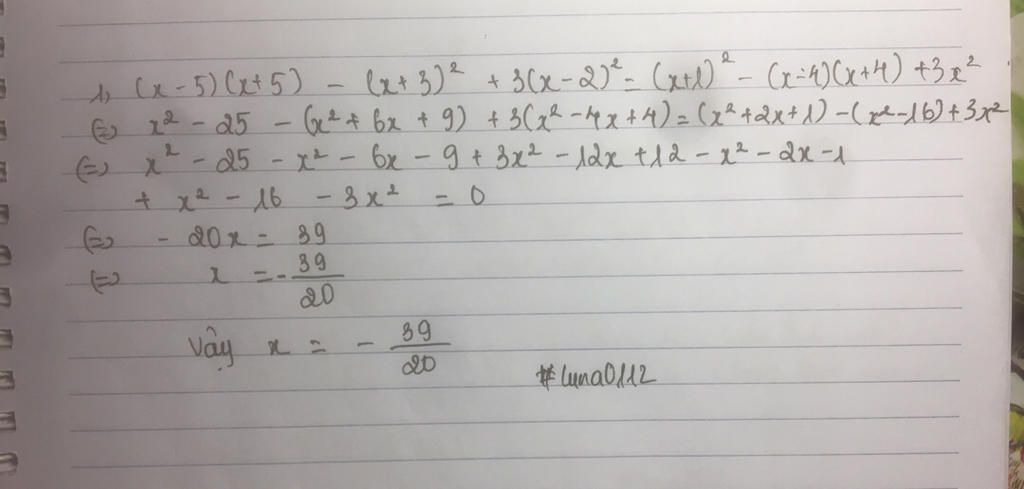 1, (x - 5)(x + 5) - (x + 3)² + 3(x - 2)² = (x+1)² - (x-4)(x+4) + 3x²
(=) x² - 25 - (x² + 6x + 9) + 3(x² - 4x + 4) = (x² + 2x + 1) - (x² - 16) + 3x²
(=) x² - 25 - x² - 6x - 9 + 3x² - 12x + 12 - x² - 2x - 1
+ x² - 16 - 3x² = 0
(=) - 20x = 39
(=) x = - 39/20
Vậy x = - 39/20
#luna0112